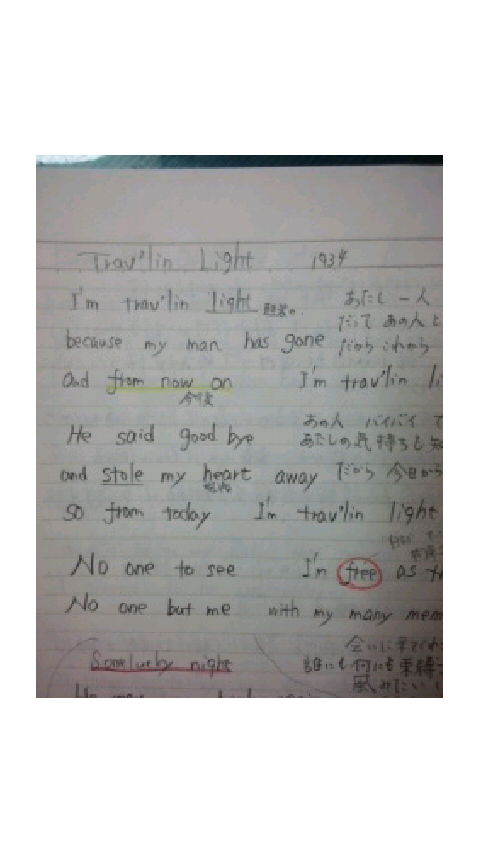 Trav'lin Light 1934
I'm trav'lin light あたし 一人
because my man has gone だから これから
and from now on I'm trav'lin
今後
あの人 バイバイ
He said good bye あたしの気持ちも
and stole my heart away だから 今日から
so from today I'm trav'lin light
No one to see I'm free as
No one but me with my many
会いに来てくれ
Some lucky night 誰にも 何にも